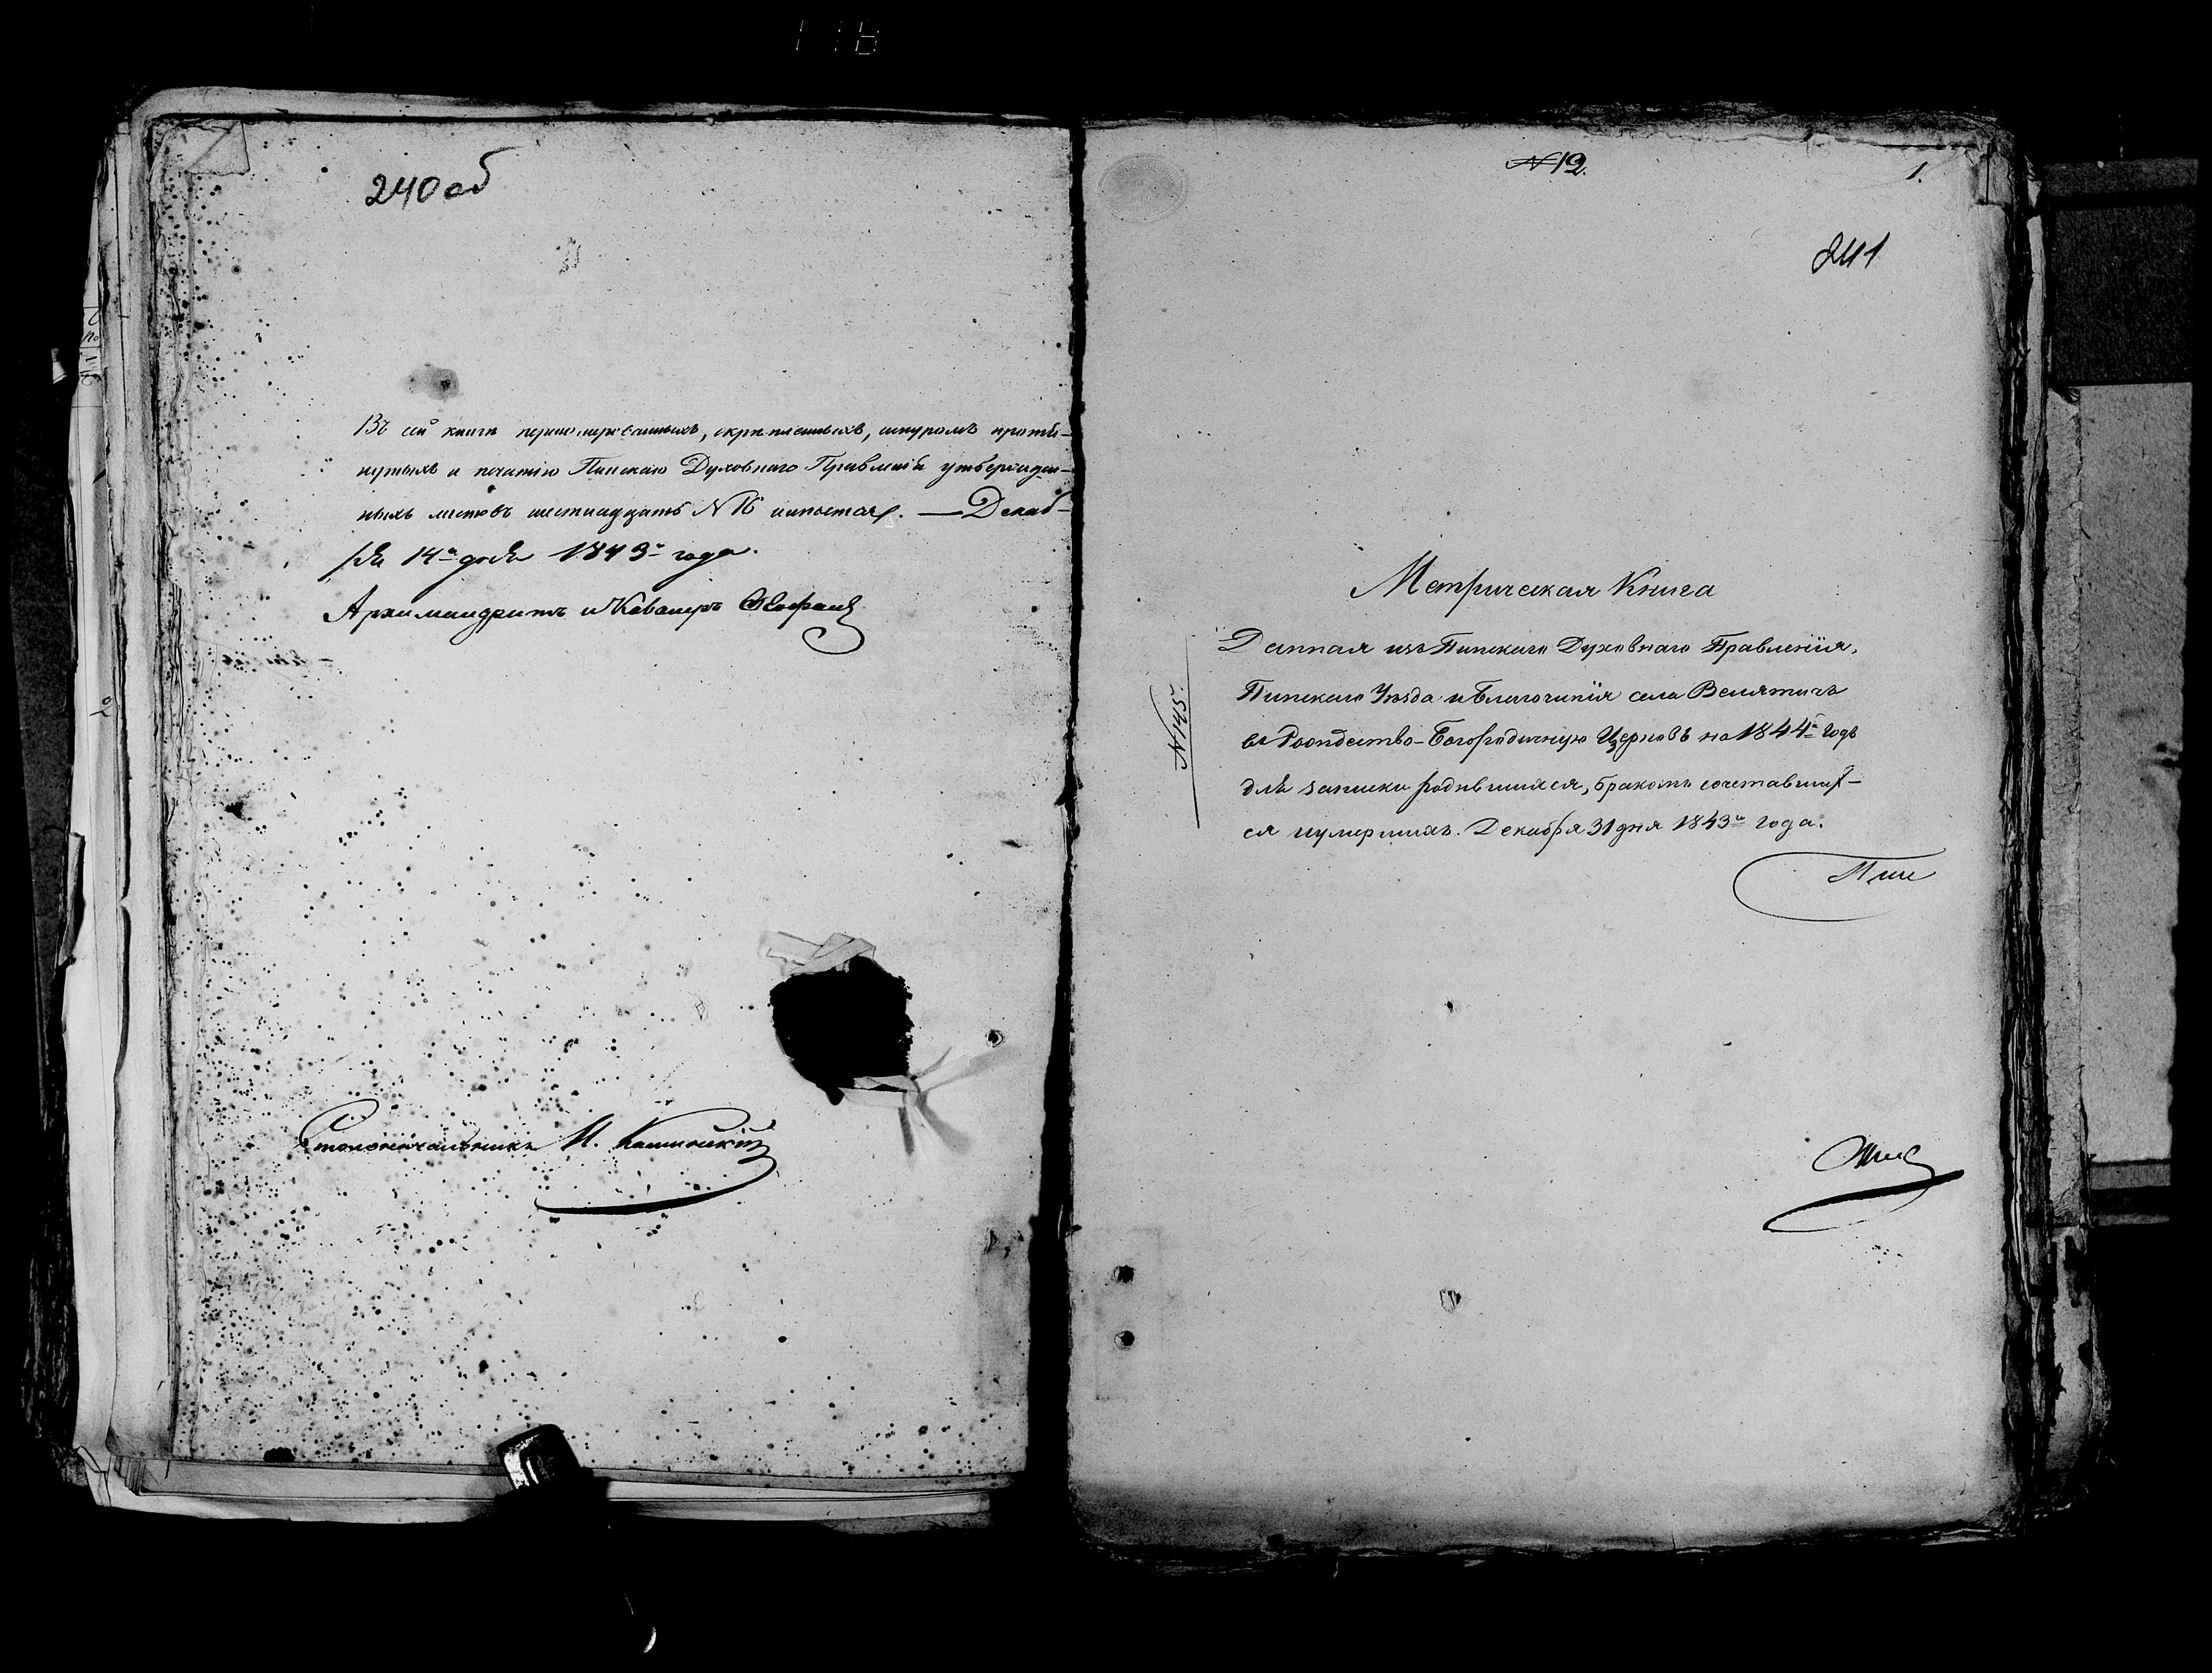 118
240 об
Въ сей книгѣ перенумерованныхъ, скрѣпленныхъ, шнуромъ протя-
нутыхъ и печатію Пинскаго Духовнаго Правленія утвержден-
ныхъ листовъ шестнадцать N 16 — Декаб-
ря 14го дня 1843го года.
Архимандритъ и Кавалеръ
Столоначальникъ
N 12.
1.
241
N 145.
Метрическая Книга
Данная изъ Пинскаго Духовнаго Правленія,
Пинскаго Уѣзда и Благочинія села Велятичъ
въ Рождество-Богородичную Церковь на 1844й Годъ
для записки родившихся, бракомъ сочетавших-
ся и умершихъ. Декабря 31 дня 1843го года.